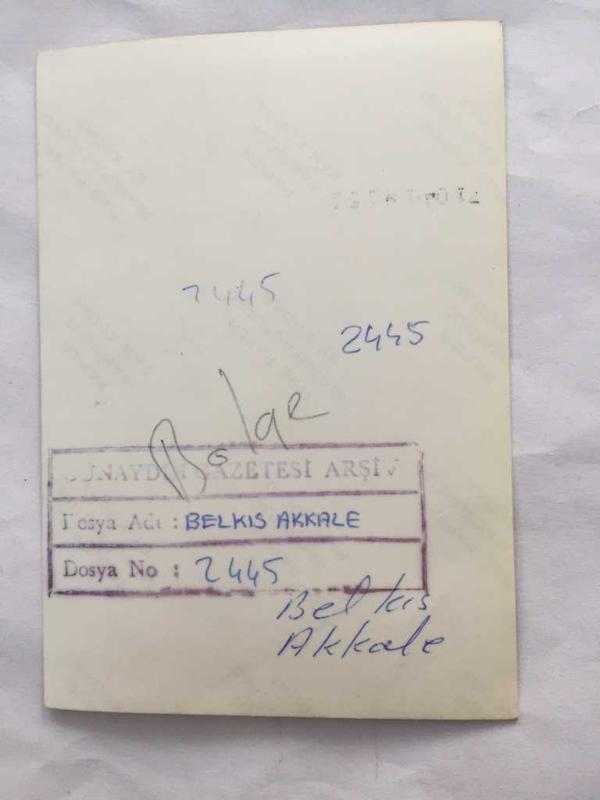 2445
2445
Bölge
GÜNAYDIN GAZETESİ ARŞİV
Dosya Adı : BELKIS AKKALE
Dosya No : 2445
Belkıs
Akkale